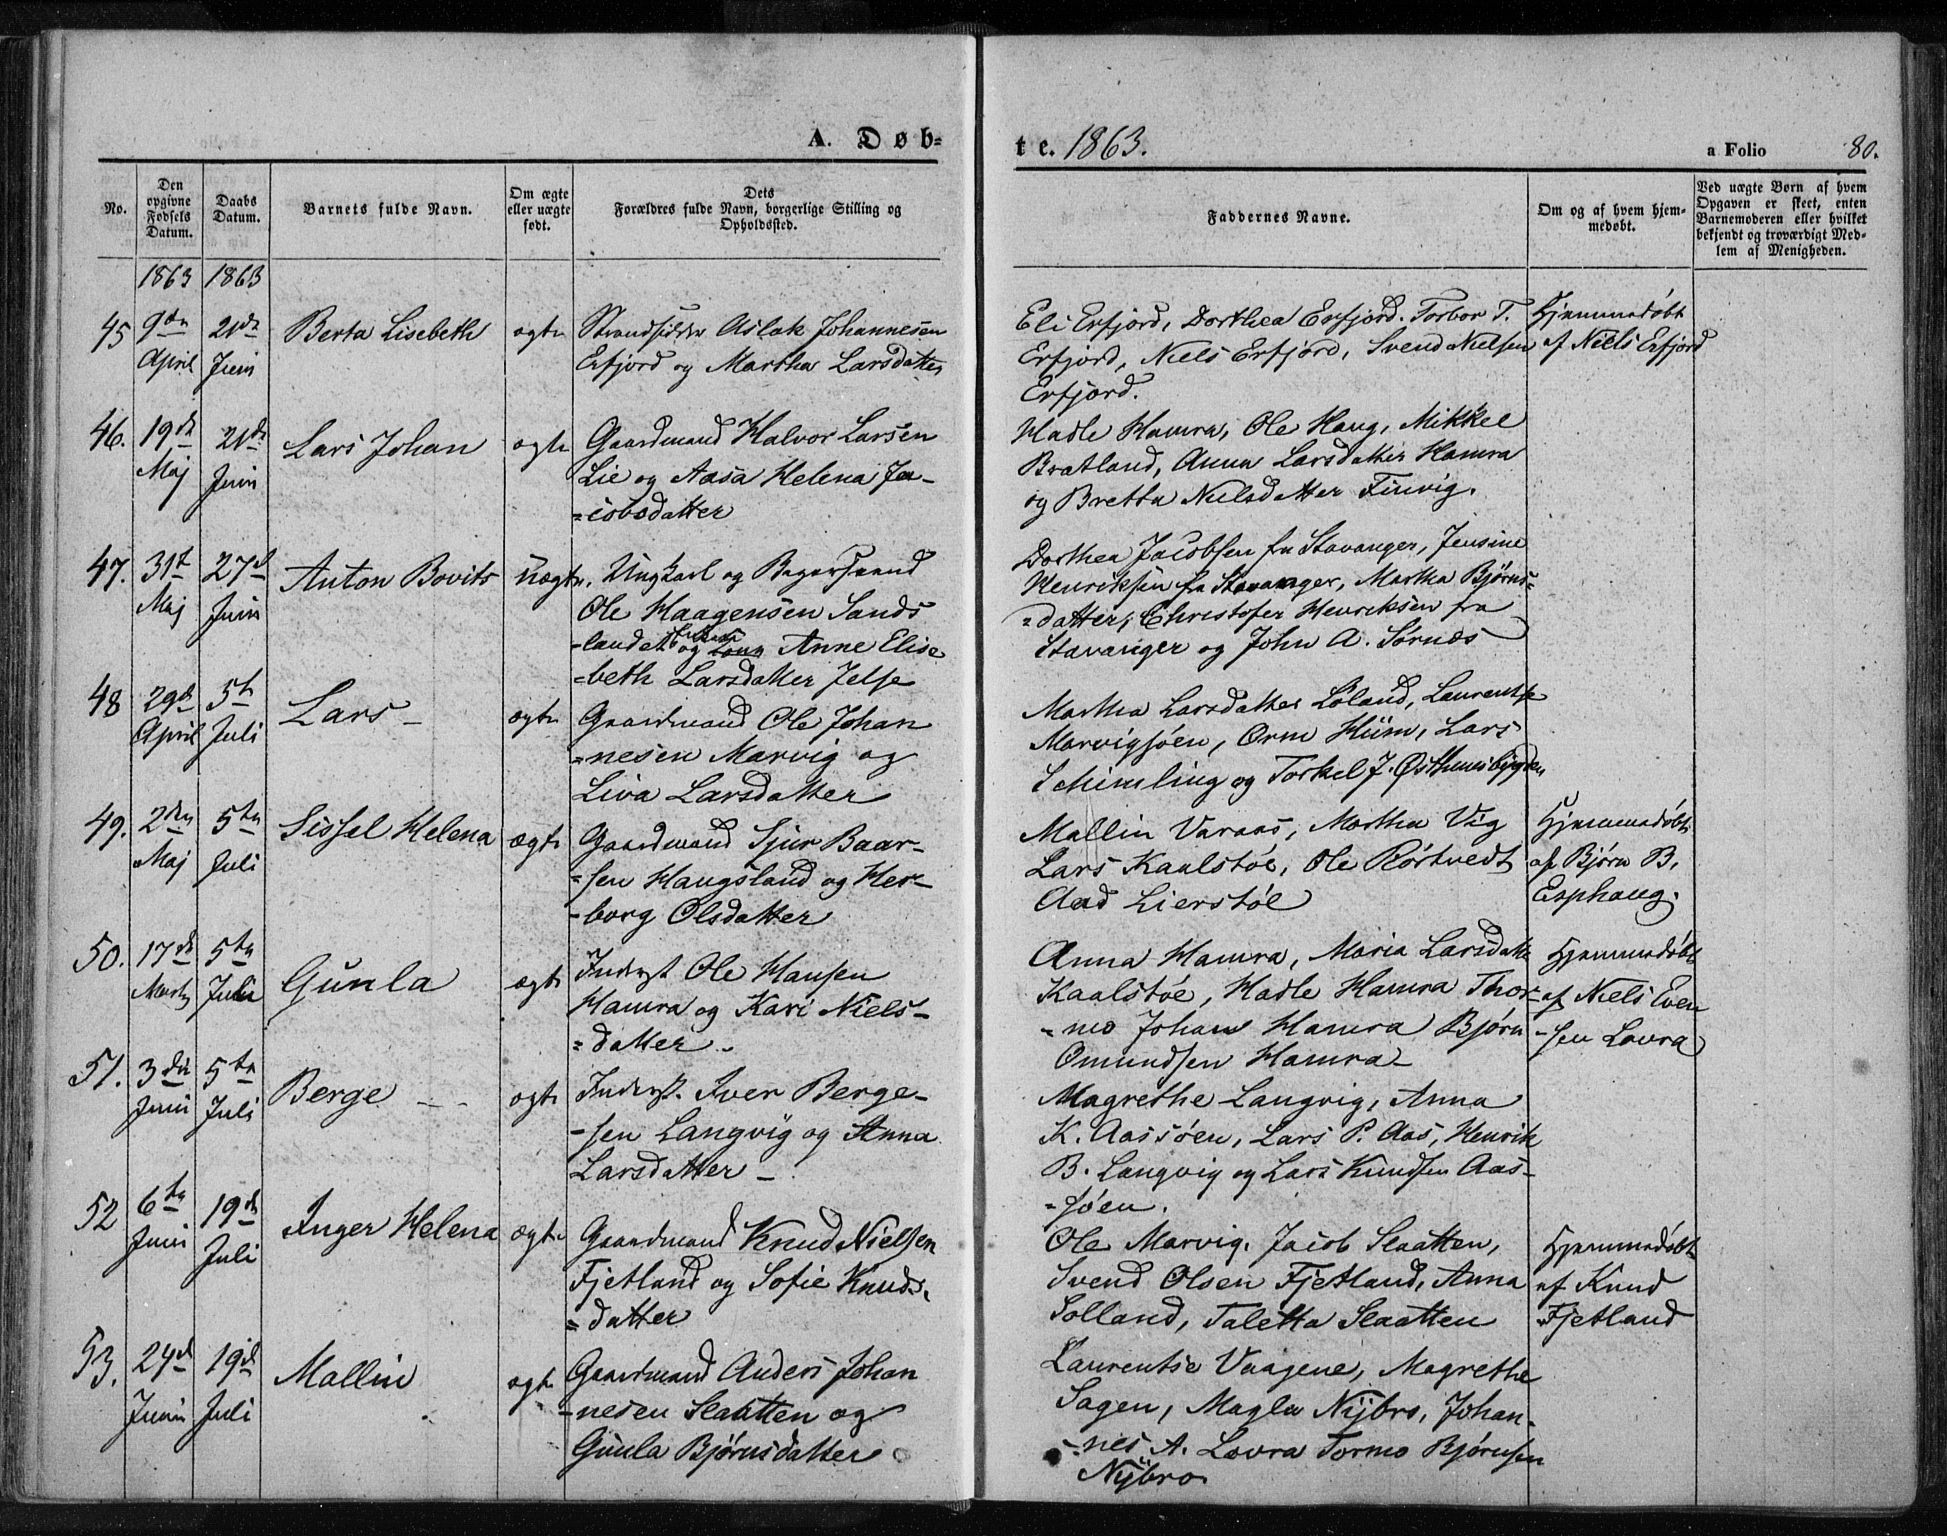 A. Døb-
te. 1863.
a Folio 80.
No.
Den opgivne Fødsels Datum.
Daabs Datum.
Barnets fulde Navn.
Om ægte eller uægte født.
Dets
Forældres fulde Navn, borgerlige Stilling og
Opholdssted.
Faddernes Navne.
Om og af hvem hjem-
medøbt.
Ved uægte Børn af hvem
Opgaven er skeet, enten
Barnemoderen eller hvilket
bekjendt og troværdigt Med-
lem af Menigheden.
1863 1863
45 9de April 21de Juni Berta Lisebeth ægte
Strandsidder Aslak Johannesen
Erfjord og Martha Larsdatter
Eli Erfjord, Dorthea Erfjord. Torbor T.
Erfjord, Niels Erfjord, Svend Nielsen
Erfjord.
Hjemmedøbt
af Niels Erfjord
46. 19de Maj 21de Juni Lars Johan ægte
Gaardmand Halvor Larsen
Lie og Aasa Helena Ja-
=cobsdatter
Hadle Hamra, Ole Haug, Mikkel
Bratland, Anna Larsdatter Hamra
og Bretta Nielsdatter Finvig.
47. 31t Maj 27d Juni Anton Bovits uægte.
Ungkarl og Bagersvend
Ole Haagensen Sands
-landet og Anne Elise
=beth Larsdatter Jelse
Dorthea Jacobsen fra Stavanger, Jensine
Henriksen fra Stavanger, Martha Bjørns=
=datter, Christofer Henriksen fra
Stavanger og John A. Sørnes
48 29d April 5t Juli Lars - ægte
Gaardmand Ole Johan
=nesen Marvig og
Liva Larsdatter
Martha Larsdatter Løland, Laurentse
Marvigsøen, Orm Hiim, Lars
Schimling og Torkel J. Østhuusbøgden
49. 2den Maj 5te Juli Sissel Helena ægte
Gaardmand Sjur Baar-
=sen Haugsland og Her-
-borg Olsdatter
Mallin Varaas, Martha Vig
Lars Kaalstøe, Ole Rørtvedt
Aad Lierstøl
Hjemmedøbt
af Bjørn B.
Esphaug.
50. 17de Marts 5te Juli Gunla ægte
Inderst Ole Hansen
Hamra og Kari Niels-
=datter.
Anna Hamra, Maria Larsdatter
Kaalstøe, Hadle Hamra Thor-
=mo Johan Hamra Bjørn
Omundsen Hamra-
Hjemmedøbt
af Niels Even
-sen Lovra
51. 3die Juni 5te Juli Berge - - ægte
Inderst. Iver Berge-
-sen Langvig og Anna
Larsdatter -
Magrethe Langvig, Anna
K. Aassøen, Lars P. Aas, Henrik
B. Langvig og Lars Knudsen Aas-
-søen.
52 6te Juni 19de Juli Inger Helena ægte
Gaardmand Knud Nielsen
Fjetland og Sofie Knuds.
=datter
Ole Marvig, Jacob Slaatten,
Svend Olsen Fjetland, Anna
Solland, Taletta Slaatten
Hjemmedøbt
af Knud
Fjetland
53. 24d Juni 19d Juli Mallin ægte
Gaardmand Anders Johan
-nesen Slaatten og
Gunla Bjørnsdatter
Laurentse Vaagene, Magrethe
Sagen, Magla Nÿbro, Johan-
-nes A. Lovra Tormo Bjørnsen
Nÿbro